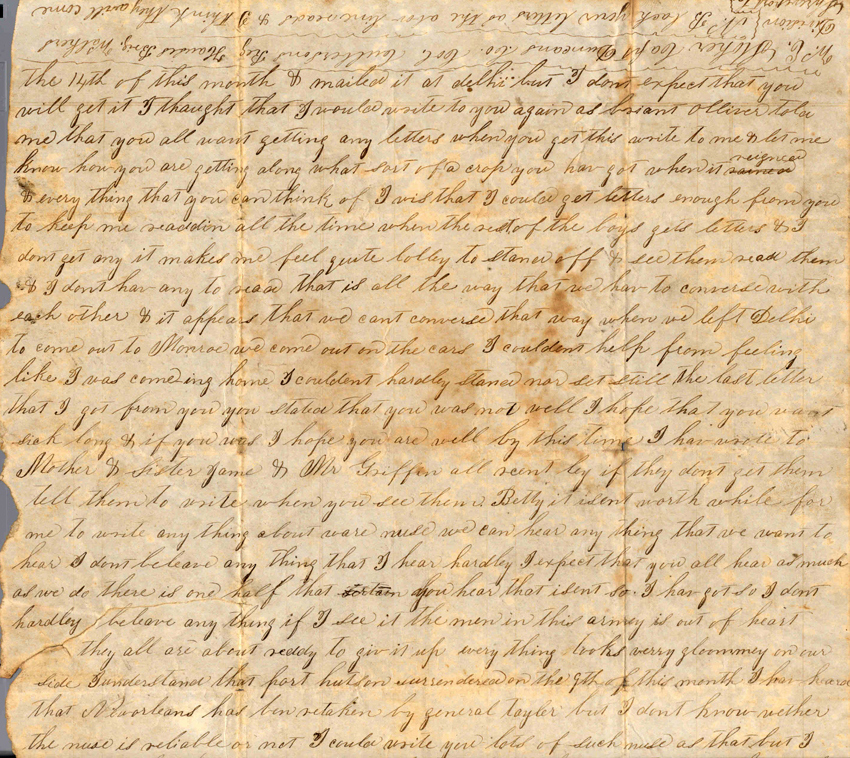 the 14th of this month & mailed it at delhi but I dont expect that you
will get it I thought that I would write to you again as briant olliver tola
me that you all want getting any letters when you get this write to me & let me
know how you are getting along what sort of a crop you hav got when it
& every thing that you can think of I wis that I could get letters enough from you
to keep me readdin all the time when the rest of the boys gets letters & I
dont get any it makes me feel quite to stand off & see them read them
& I dont hav any to read that is all the way that we hav to converse with
each other & it appears that we cant converse that way when we left Delhi
to come out to Monroe we come out on the cars I couldent help from feeling
like I was comeing home I couldent hardley stand nor set still the last letter
that I got from you you stated that you was not well I hope that you want
sick long & if you was I hope you are well by this time I hav wrote to
Mother & sister & Mr Griffin all recent ley if they dont get them
tell them to write when you see them Betty it isent worth while for
me to write any thing about ware nuse we can hear any thing that we want to
hear I dont beleave any thing that I hear hardley I expect that you all hear as much
as we do there is one half that you hear that isent so I hav got so I dont
hardley beleave any thing if I see it the men in this army is out of heart
they all are about reddy to giv it up every thing looks verry gloommey on our
side I understand that port hutson surrendered on the 9th of this month I hav heard
that has ben retaken by general tayler but I dont know wether
the nuse is reliable or not I could write you lots of such nuse as that but I
W. C. Capt Duncans Co. Col Reg
look your letters as the above he reads & I think they will come